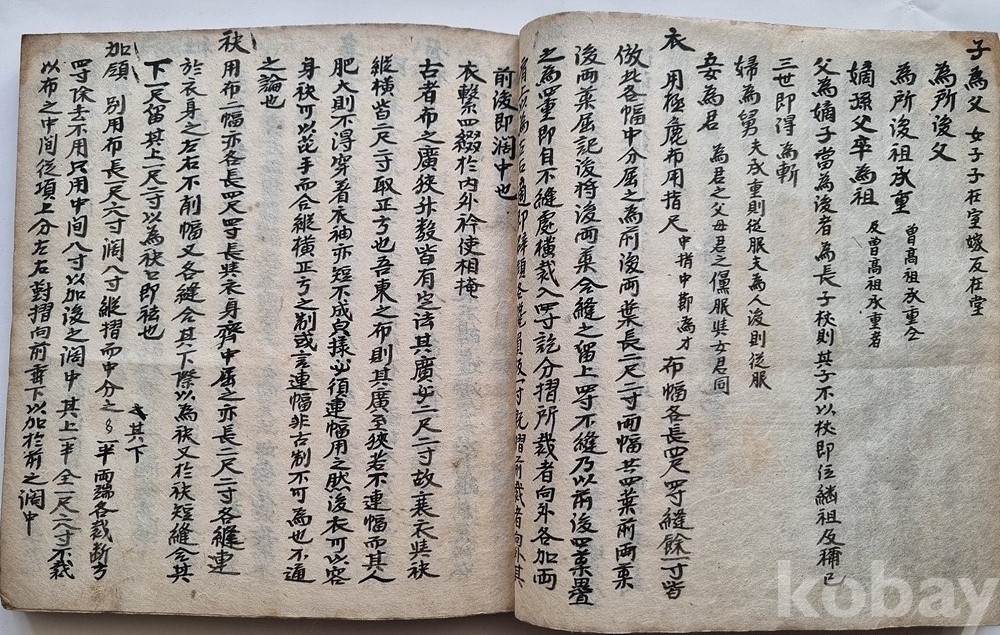 子為父 女子子在室嫁反在堂
為所後父
為所後祖承重 曾高祖承重仝
嫡孫父卒為祖 及曾高祖承重者
父為嫡子當為後者 為長子杖則其子不以杖即位 繼祖及禰已
三世即得為斬
婦為舅 夫承重則從服夫為人後則從服
妾為君 為君之父母君之黨服與女君同
衣 用極麁布用指尺 中指中節為寸 布幅各長四尺四寸縫餘一寸皆
倣此各幅中分屈之為前後兩葉長二尺二寸兩幅共四葉前兩葉
後兩葉屈記後將後兩葉合縫之留上四寸不縫乃以前後四葉疊
之為四重即自不縫處橫裁入四寸訖分摺所裁者向外各加兩
前後即濶中也
衣繫四綴於內外衿使相掩
古者布之廣狹升數皆有定法其廣必二尺二寸故衰衣與袂
縱橫皆二尺二寸取正方也吾東之布則其廣至狹若不連幅而其人
肥大則不得穿著衣袖亦短不成貌樣必須連幅用之然後衣可以容
身袂可以花手而合縱橫正方之制或言連幅非古制不可為也不通
之論也
袂 用布二幅亦各長四尺四寸長與衣身齊中屈之亦長二尺二寸各縫連
於衣身之左右不削幅又各縫合其下際以為袂又於袂短縫合其
下一尺留其上一尺二寸以為袂口即祛也
加領 別用布長一尺六寸濶八寸縱摺而中分之 其下一半兩端各裁斷方
四寸除去不用只用中間八寸以加後之濶中其上一半全一尺六寸不裁
以布之中間從項上分左右對摺向前垂下以加於前之濶中
kobay